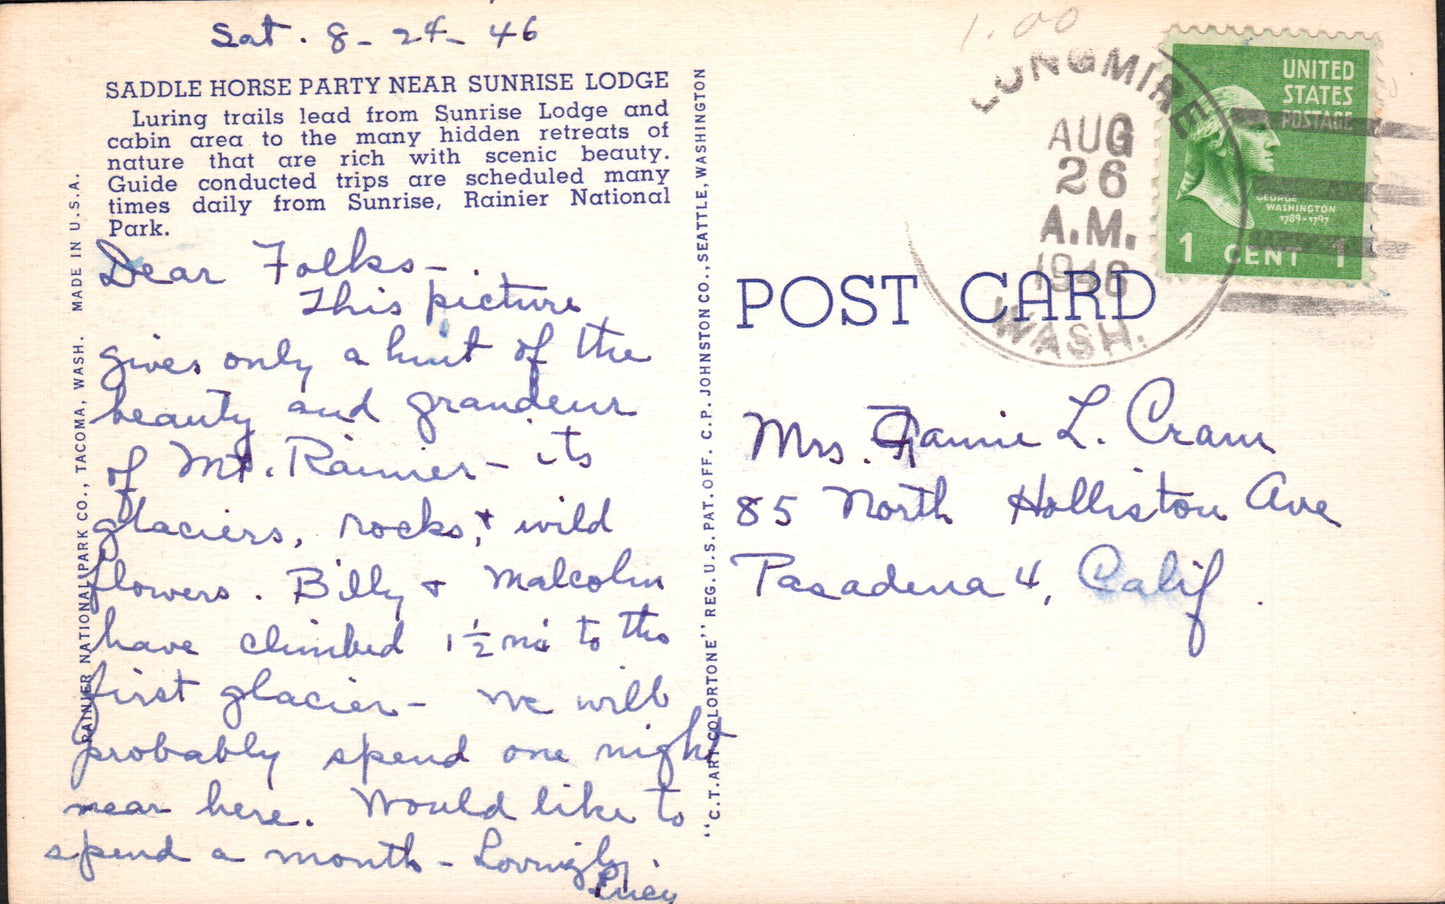 Sat. 8-24-46
1.00
SADDLE HORSE PARTY NEAR SUNRISE LODGE
Luring trails lead from Sunrise Lodge and
cabin area to the many hidden retreats of
nature that are rich with scenic beauty.
Guide conducted trips are scheduled many
times daily from Sunrise, Rainier National
Park.
Dear Folks-
This picture
gives only a hint of the
beauty and grandeur
of Mt. Rainier - its
glaciers, rocks, + wild
flowers. Billy + Malcolm
have climbed 1 1/2 mi to the
first glacier - We will
probably spend one night
near here. Would like to
spend a month - Lovingly,
Lucy
RAINIER NATIONAL PARK CO., TACOMA, WASH. MADE IN U.S.A.
"C.T. ART-COLORTONE" REG. U.S. PAT. OFF. C.P. JOHNSTON CO., SEATTLE, WASHINGTON
LONGMIRE
AUG
26
A.M.
1946
WASH.
UNITED
STATES
POSTAGE
GEORGE
WASHINGTON
1789-1797
1 CENT 1
POST CARD
Mrs. Fannie L. Cram
85 North Holliston Ave
Pasadena 4, Calif.